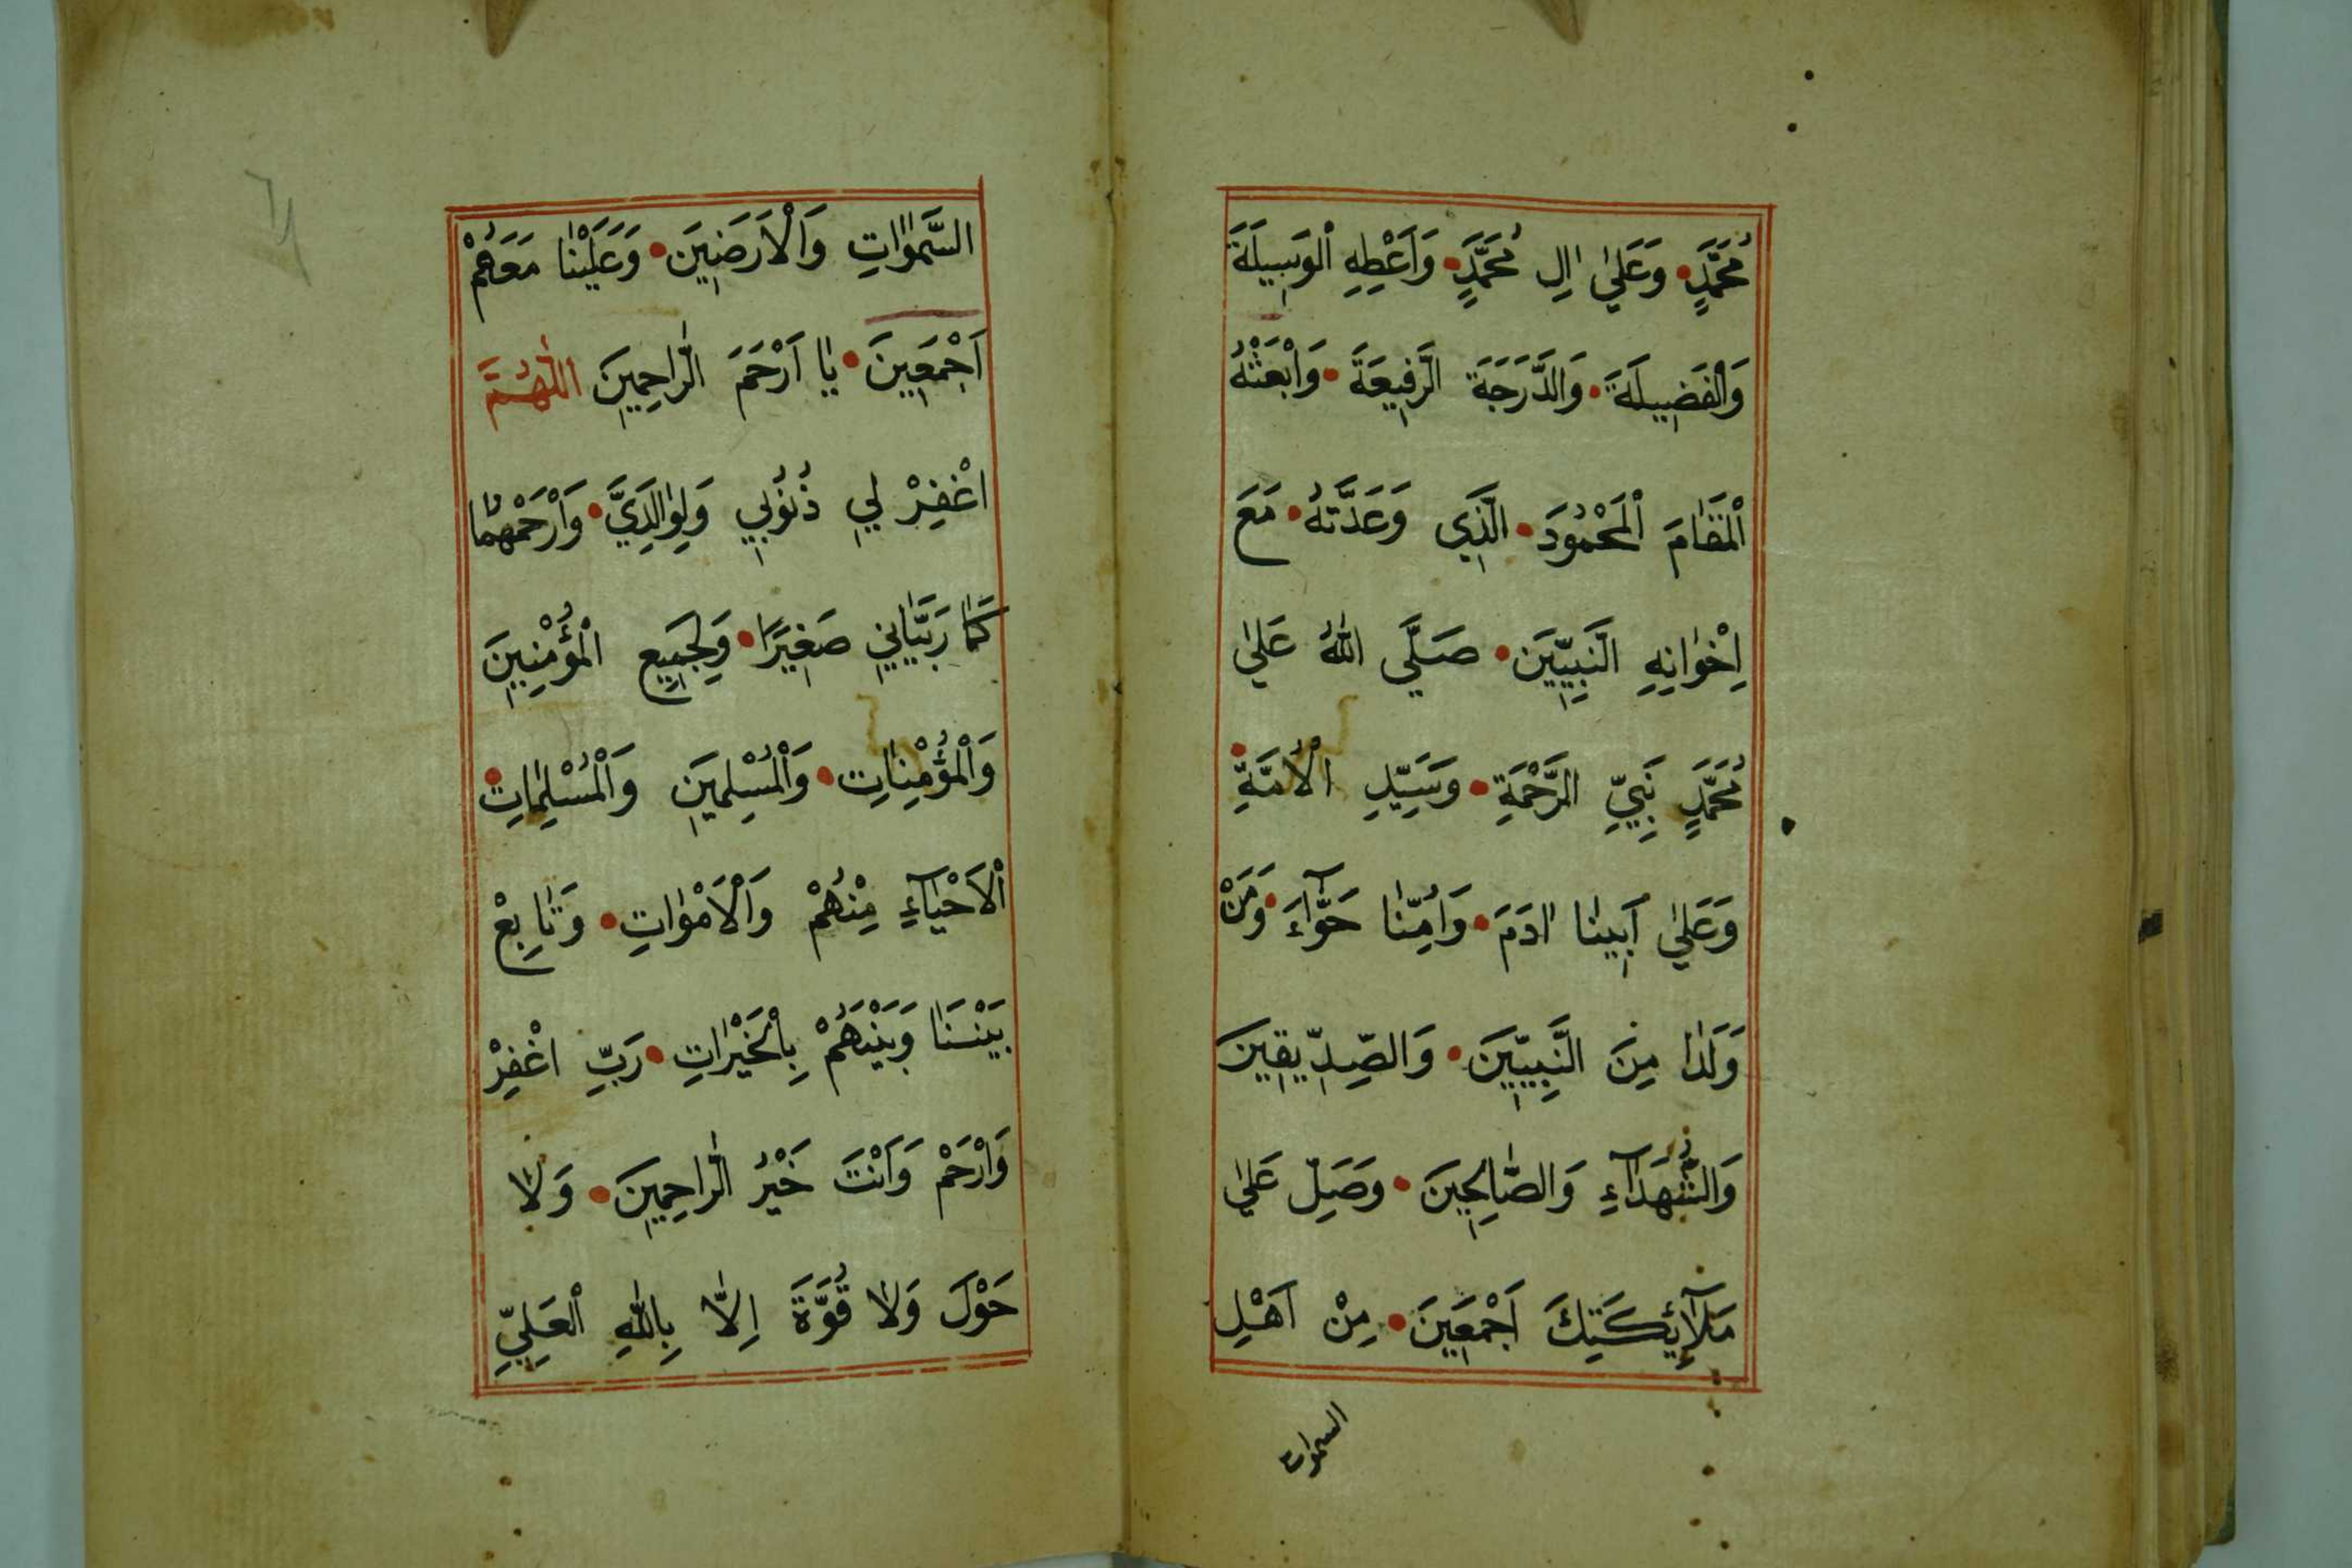 مُحَمَّدٍ • وَعَلٰي اٰلِ مُحَمَّدٍ • وَاَعْطِهِ الْوَسِيلَةَ
وَالْفَضِيلَةَ • وَالدَّرَجَةَ الرَّفِيعَةَ • وَابْعَثْهُ
الْمَقَامَ الْمَحْمُودَ • الَّذِي وَعَدَّتَهُ • مَعَ
اِخْوَانِهِ النَّبِيِّينَ • صَلَّي اللّٰهُ عَلٰي
مُحَمَّدٍ نَبِيِّ الرَّحْمَةِ • وَسَيِّدِ الْاُمَّةِ •
وَعَلٰي اَبِينَا اٰدَمَ • وَاُمِّنَا حَوَّآءَ • وَمَنْ
وَلَدَا مِنَ النَّبِيِّينَ • وَالصِّدِّيقِينَ
وَالشُّهَدَآءِ وَالصَّالِحِينَ • وَصَلِّ عَلٰي
مَلَآئِكَتِكَ اَجْمَعِينَ • مِنْ اَهْلِ
السموات
السَّمٰوَاتِ وَالْاَرَضِينَ • وَعَلَيْنَا مَعَهُمْ
اَجْمَعِينَ • يَا اَرْحَمَ الرَّاحِمِينَ اَللّٰهُمَّ
اغْفِرْ لِي ذُنُوبِي وَلِوَالِدَيَّ • وَارْحَمْهُمَا
كَمَا رَبَّيَانِي صَغِيرًا • وَلِجَمِيعِ الْمُؤْمِنِينَ
وَالْمُؤْمِنَاتِ • وَالْمُسْلِمِينَ وَالْمُسْلِمَاتِ •
الْاَحْيَآءِ مِنْهُمْ وَالْاَمْوَاتِ • وَتَابِعْ
بَيْنَنَا وَبَيْنَهُمْ بِالْخَيْرَاتِ • رَبِّ اغْفِرْ
وَارْحَمْ وَاَنْتَ خَيْرُ الرَّاحِمِينَ • وَلَا
حَوْلَ وَلَا قُوَّةَ اِلَّا بِاللّٰهِ الْعَلِيِّ